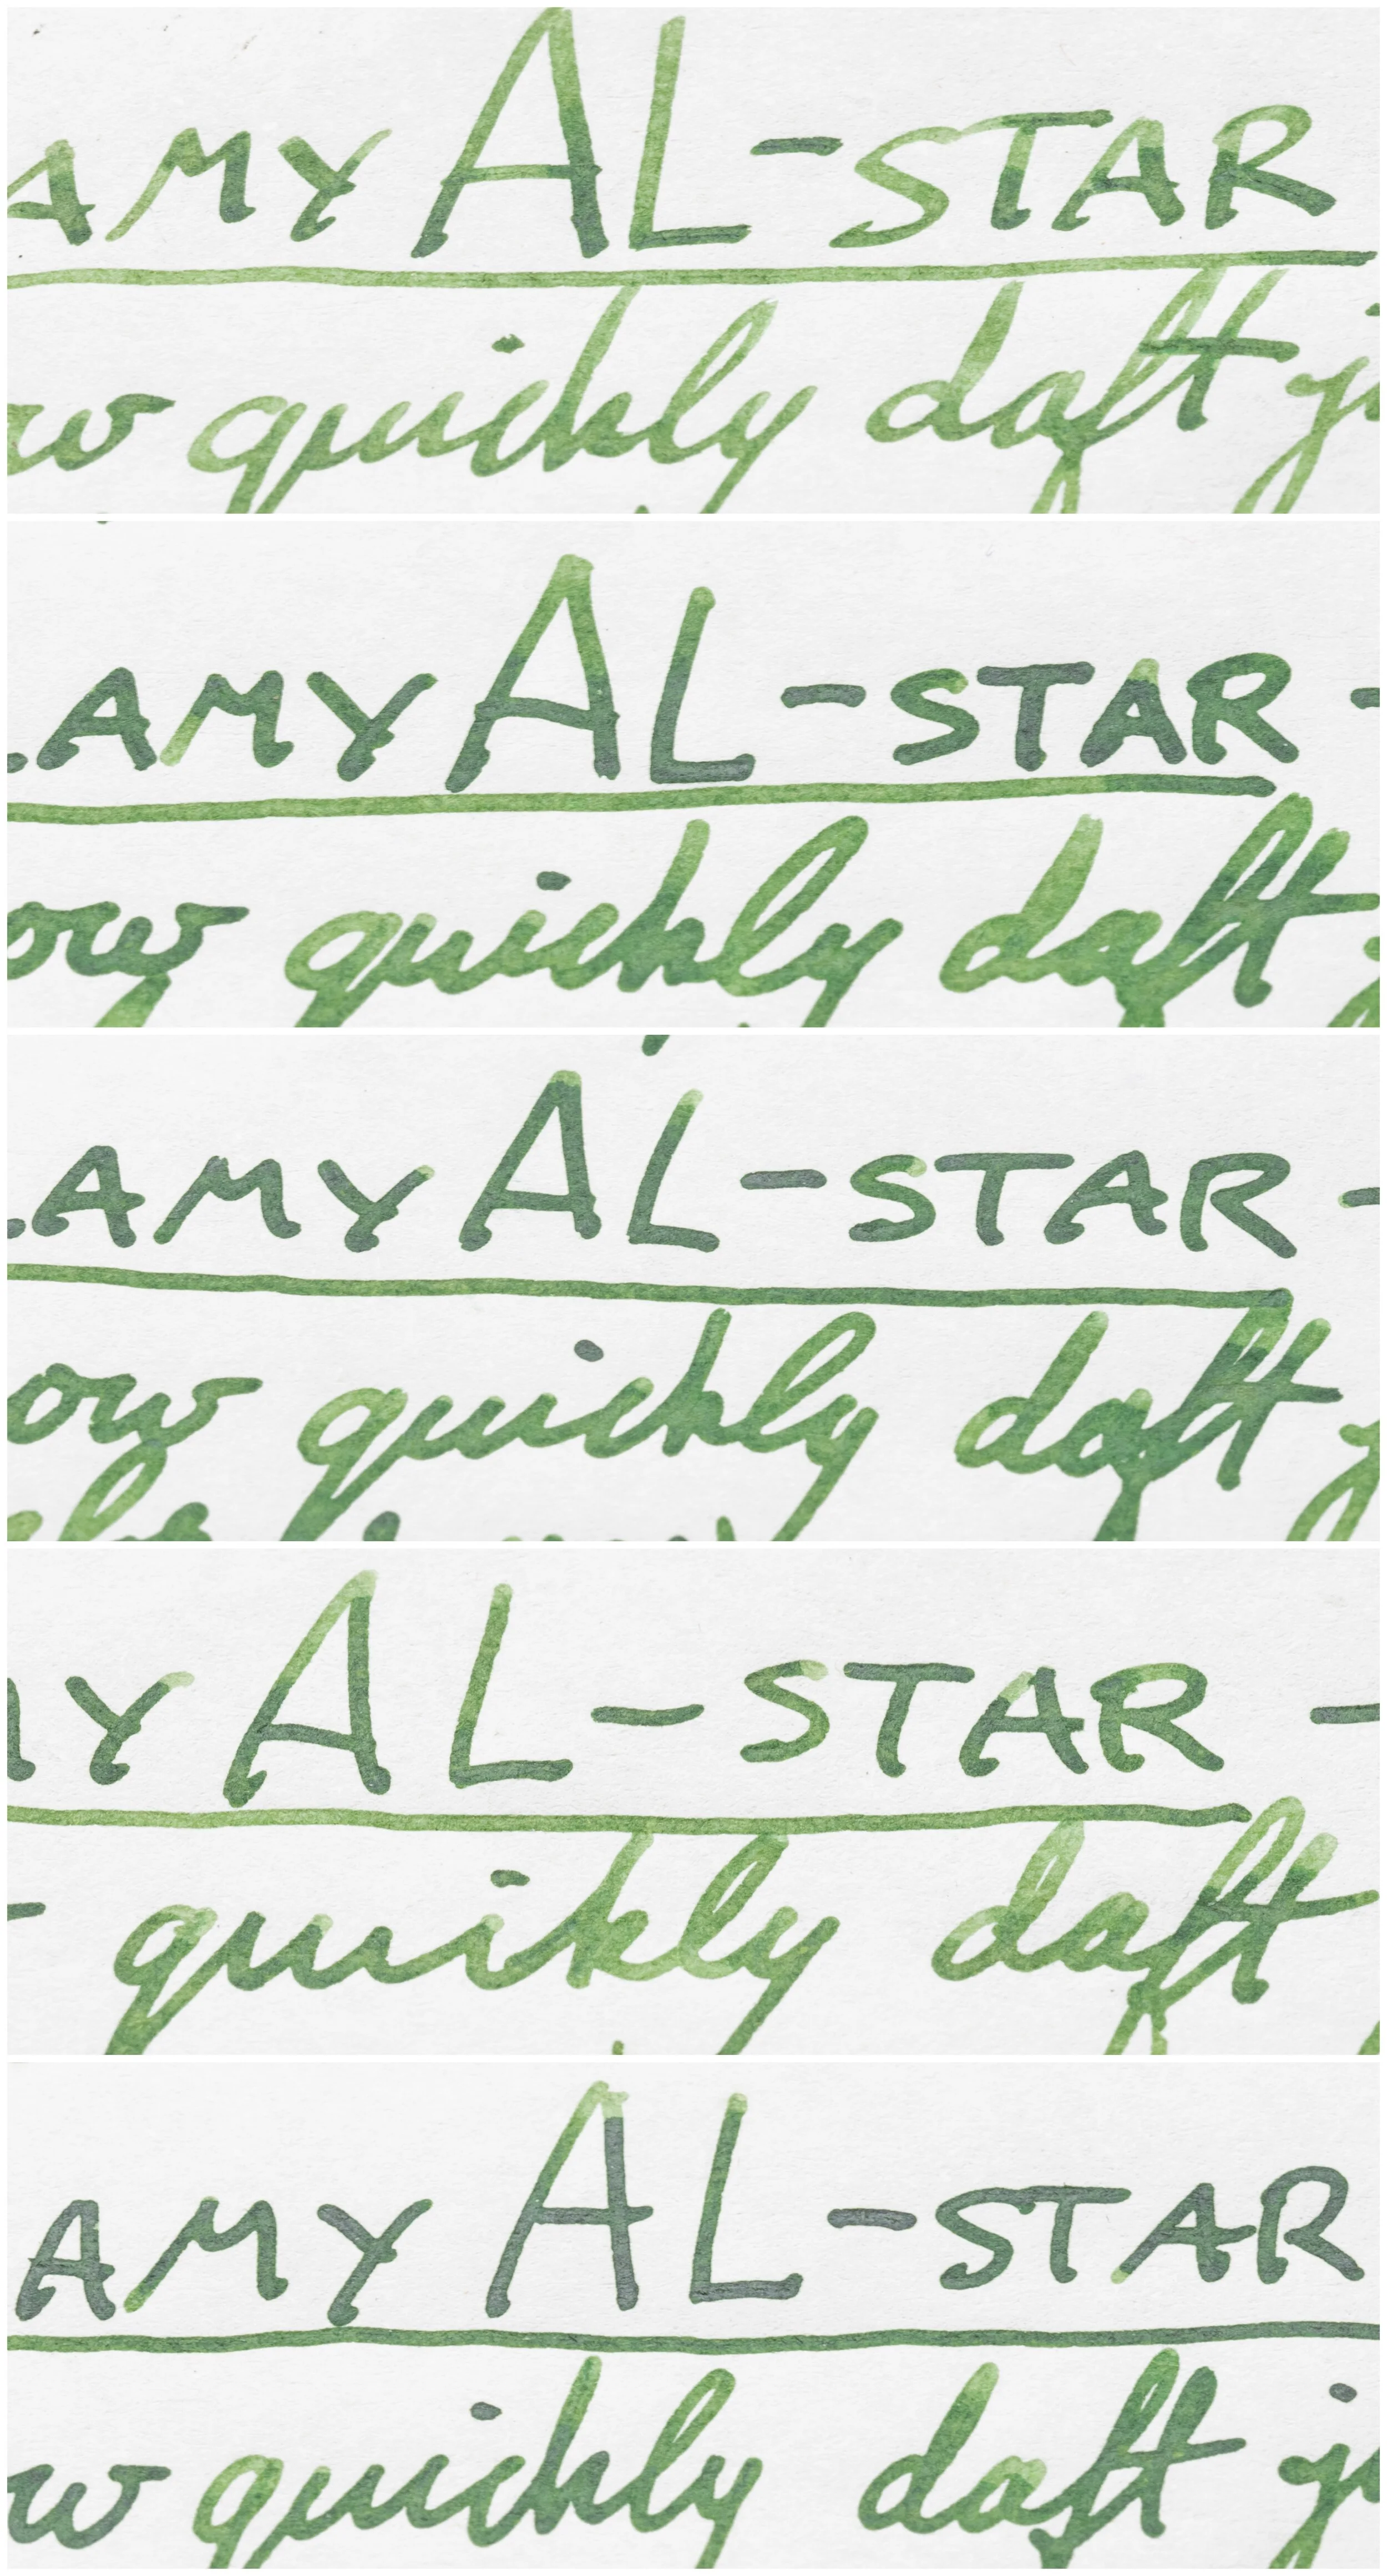 AMY AL-STAR
ow quickly daft
LAMY AL-STAR -
ow quickly daft
LAMY AL-STAR -
ow quickly daft
MY AL-STAR -
quickly daft
AMY AL-STAR
w quickly daft